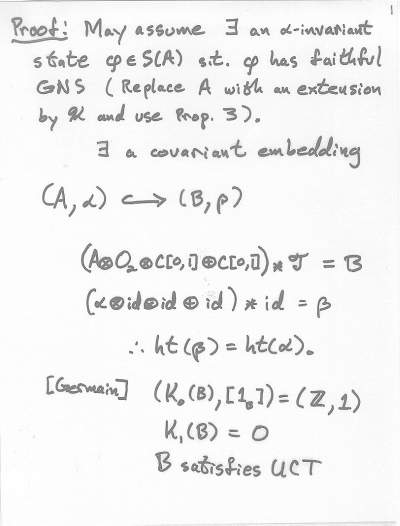 1
Proof: May assume ∃ an α-invariant
state φ∈S(A) s.t. φ has faithful
GNS (Replace A with an extension
by 𝒦 and use Prop. 3).
∃ a covariant embedding
(A, α) ↪ (B, β)
(A⊗O₂⊗C[0,1]⊕C[0,1]) * 𝒯 = B
(α⊗id⊗id ⊕ id) * id = β
∴ ht(β) = ht(α).
[Germain] (K₀(B), [1_B]) = (ℤ, 1)
K₁(B) = 0
B satisfies UCT